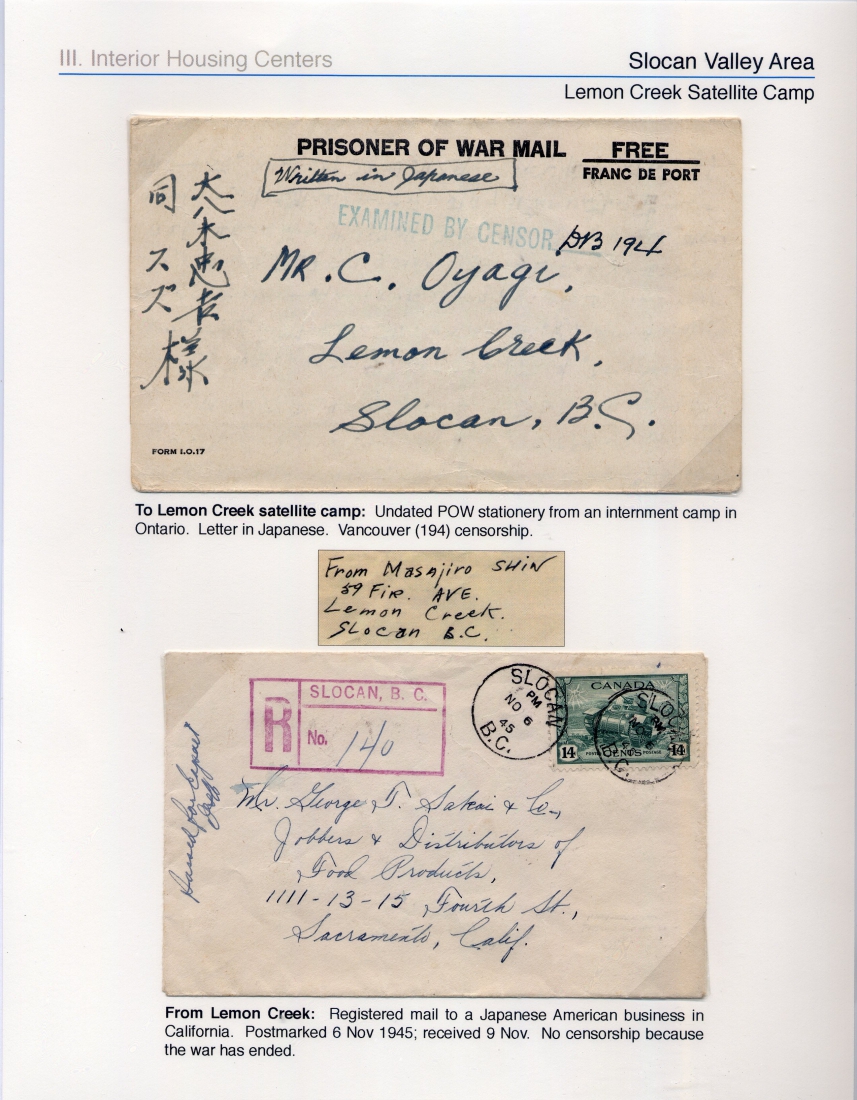 III. Interior Housing Centers
Slocan Valley Area
Lemon Creek Satellite Camp
PRISONER OF WAR MAIL
FREE
FRANC DE PORT
Written in Japanese
EXAMINED BY CENSOR
DB 194
大八木忠吉様
同スズ
MR. C. Oyagi,
Lemon Creek,
Slocan, B.C.
FORM I.O.17
To Lemon Creek satellite camp: Undated POW stationery from an internment camp in
Ontario. Letter in Japanese. Vancouver (194) censorship.
From Masajiro SHIN
59 Fir. AVE.
Lemon Creek.
SLocan B.C.
R
SLOCAN, B. C.
No. 140
SLOCAN
PM
NO 6
45
B.C.
CANADA
14 CENTS 14
POSTES POSTAGE
SLOCAN
PM
NO 6
B.C.
Mr. George T. Sakai & Co.,
Jobbers & Distributors of
Food Products,
1111-13-15 Fourth St.,
Sacramento, Calif.
From Lemon Creek: Registered mail to a Japanese American business in
California. Postmarked 6 Nov 1945; received 9 Nov. No censorship because
the war has ended.